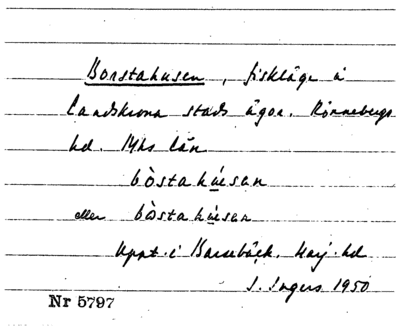 Borstahusen, fiskläge å
Landskrona stads ägor. Rönnebergs
hd. Mhs län
bòstahúesan
eller bòstahúesen
Uppt. i Barsebäck, Harj. hd
I. Ingers 1950
Nr 5797